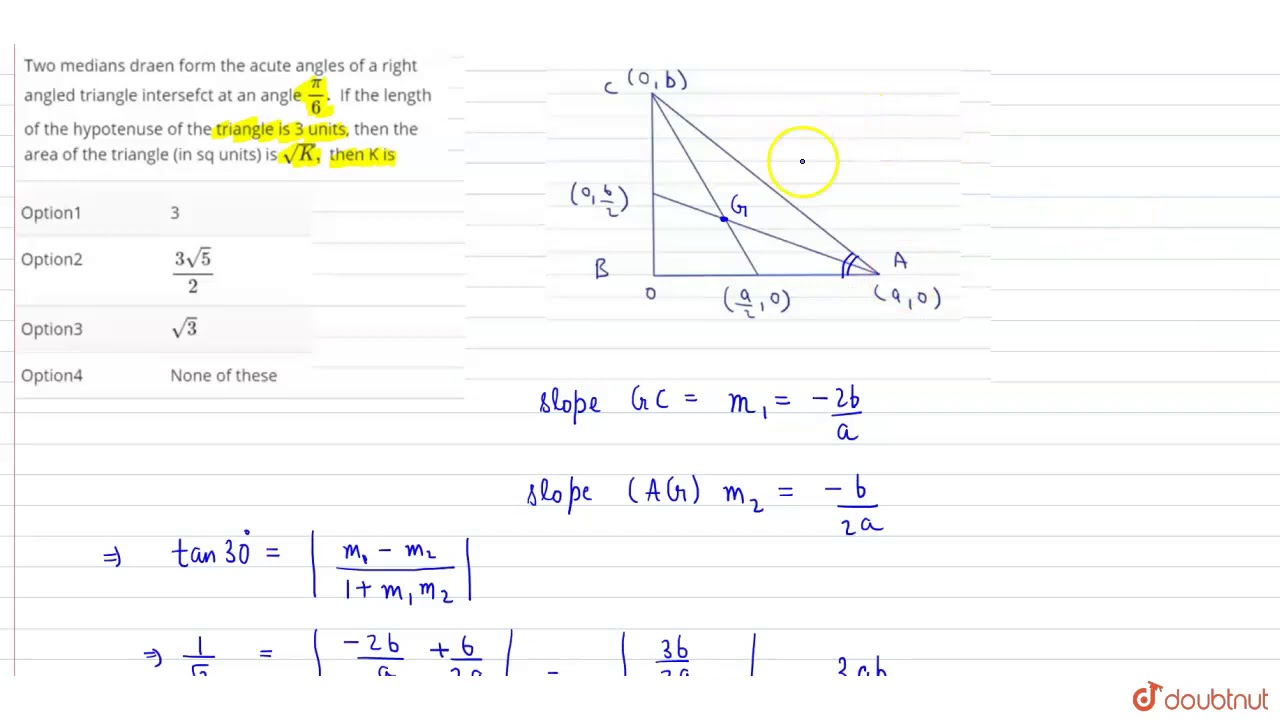 Two medians draen form the acute angles of a right
angled triangle intersefct at an angle π/6. If the length
of the hypotenuse of the triangle is 3 units, then the
area of the triangle (in sq units) is √K, then K is
Option1 3
Option2 3√5/2
Option3 √3
Option4 None of these
C (0, b)
(0, b/2)
G
B
A
0
(a/2, 0)
(a, 0)
slope GC = m₁ = -2b/a
slope (AG) m₂ = -b/2a
⇒ tan30° = | m₁ - m₂ / 1 + m₁m₂ |
⇒ 1 = | -2b + b | = | 3b | 3ab
doubtnut